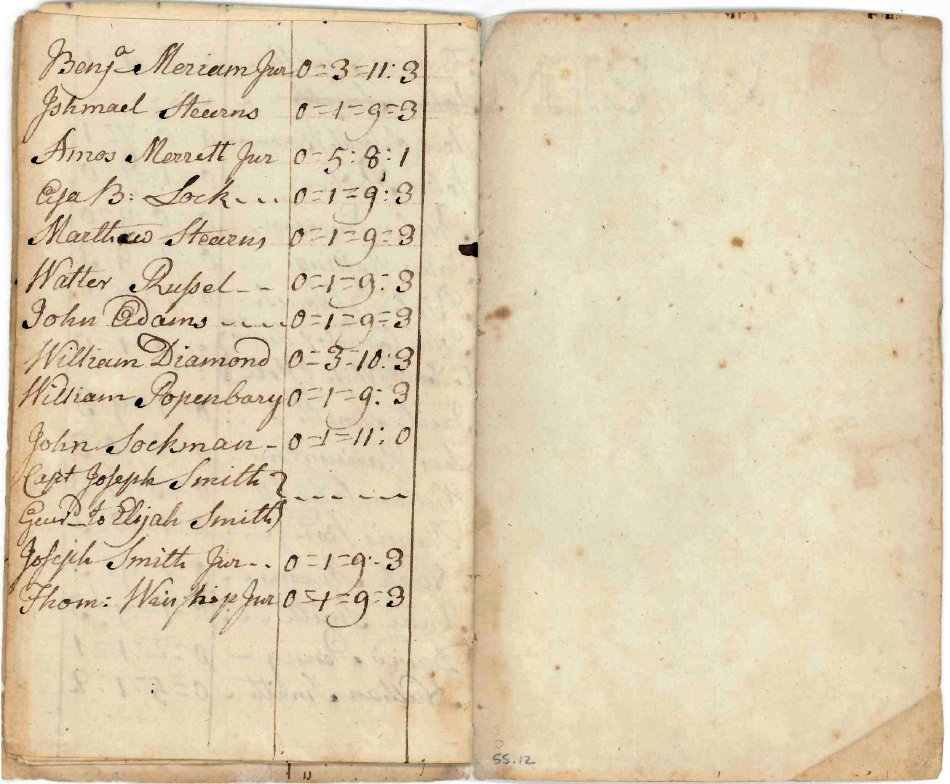 Benjᵃ Meriam Jur 0=3=11:3
Ishmael Stearns 0=1=9=3
Amos Merrett Jur 0=5:8:1
Asa B: Lock... 0=1=9:3
Marthew Stearns 0=1=9=3
Walter Rußel-- 0=1=9:3
John Adams .... 0=1=9=3
William Diamond 0=3=10:3
William Popenbary 0=1=9:3
John Lockman - 0=1=11:0
Capt Joseph Smith }
Guardⁿ to Elijah Smith } - - - - -
Joseph Smith Jur.. 0=1=9:3
Thom: Winship Jur 0=1=9=3
55.12